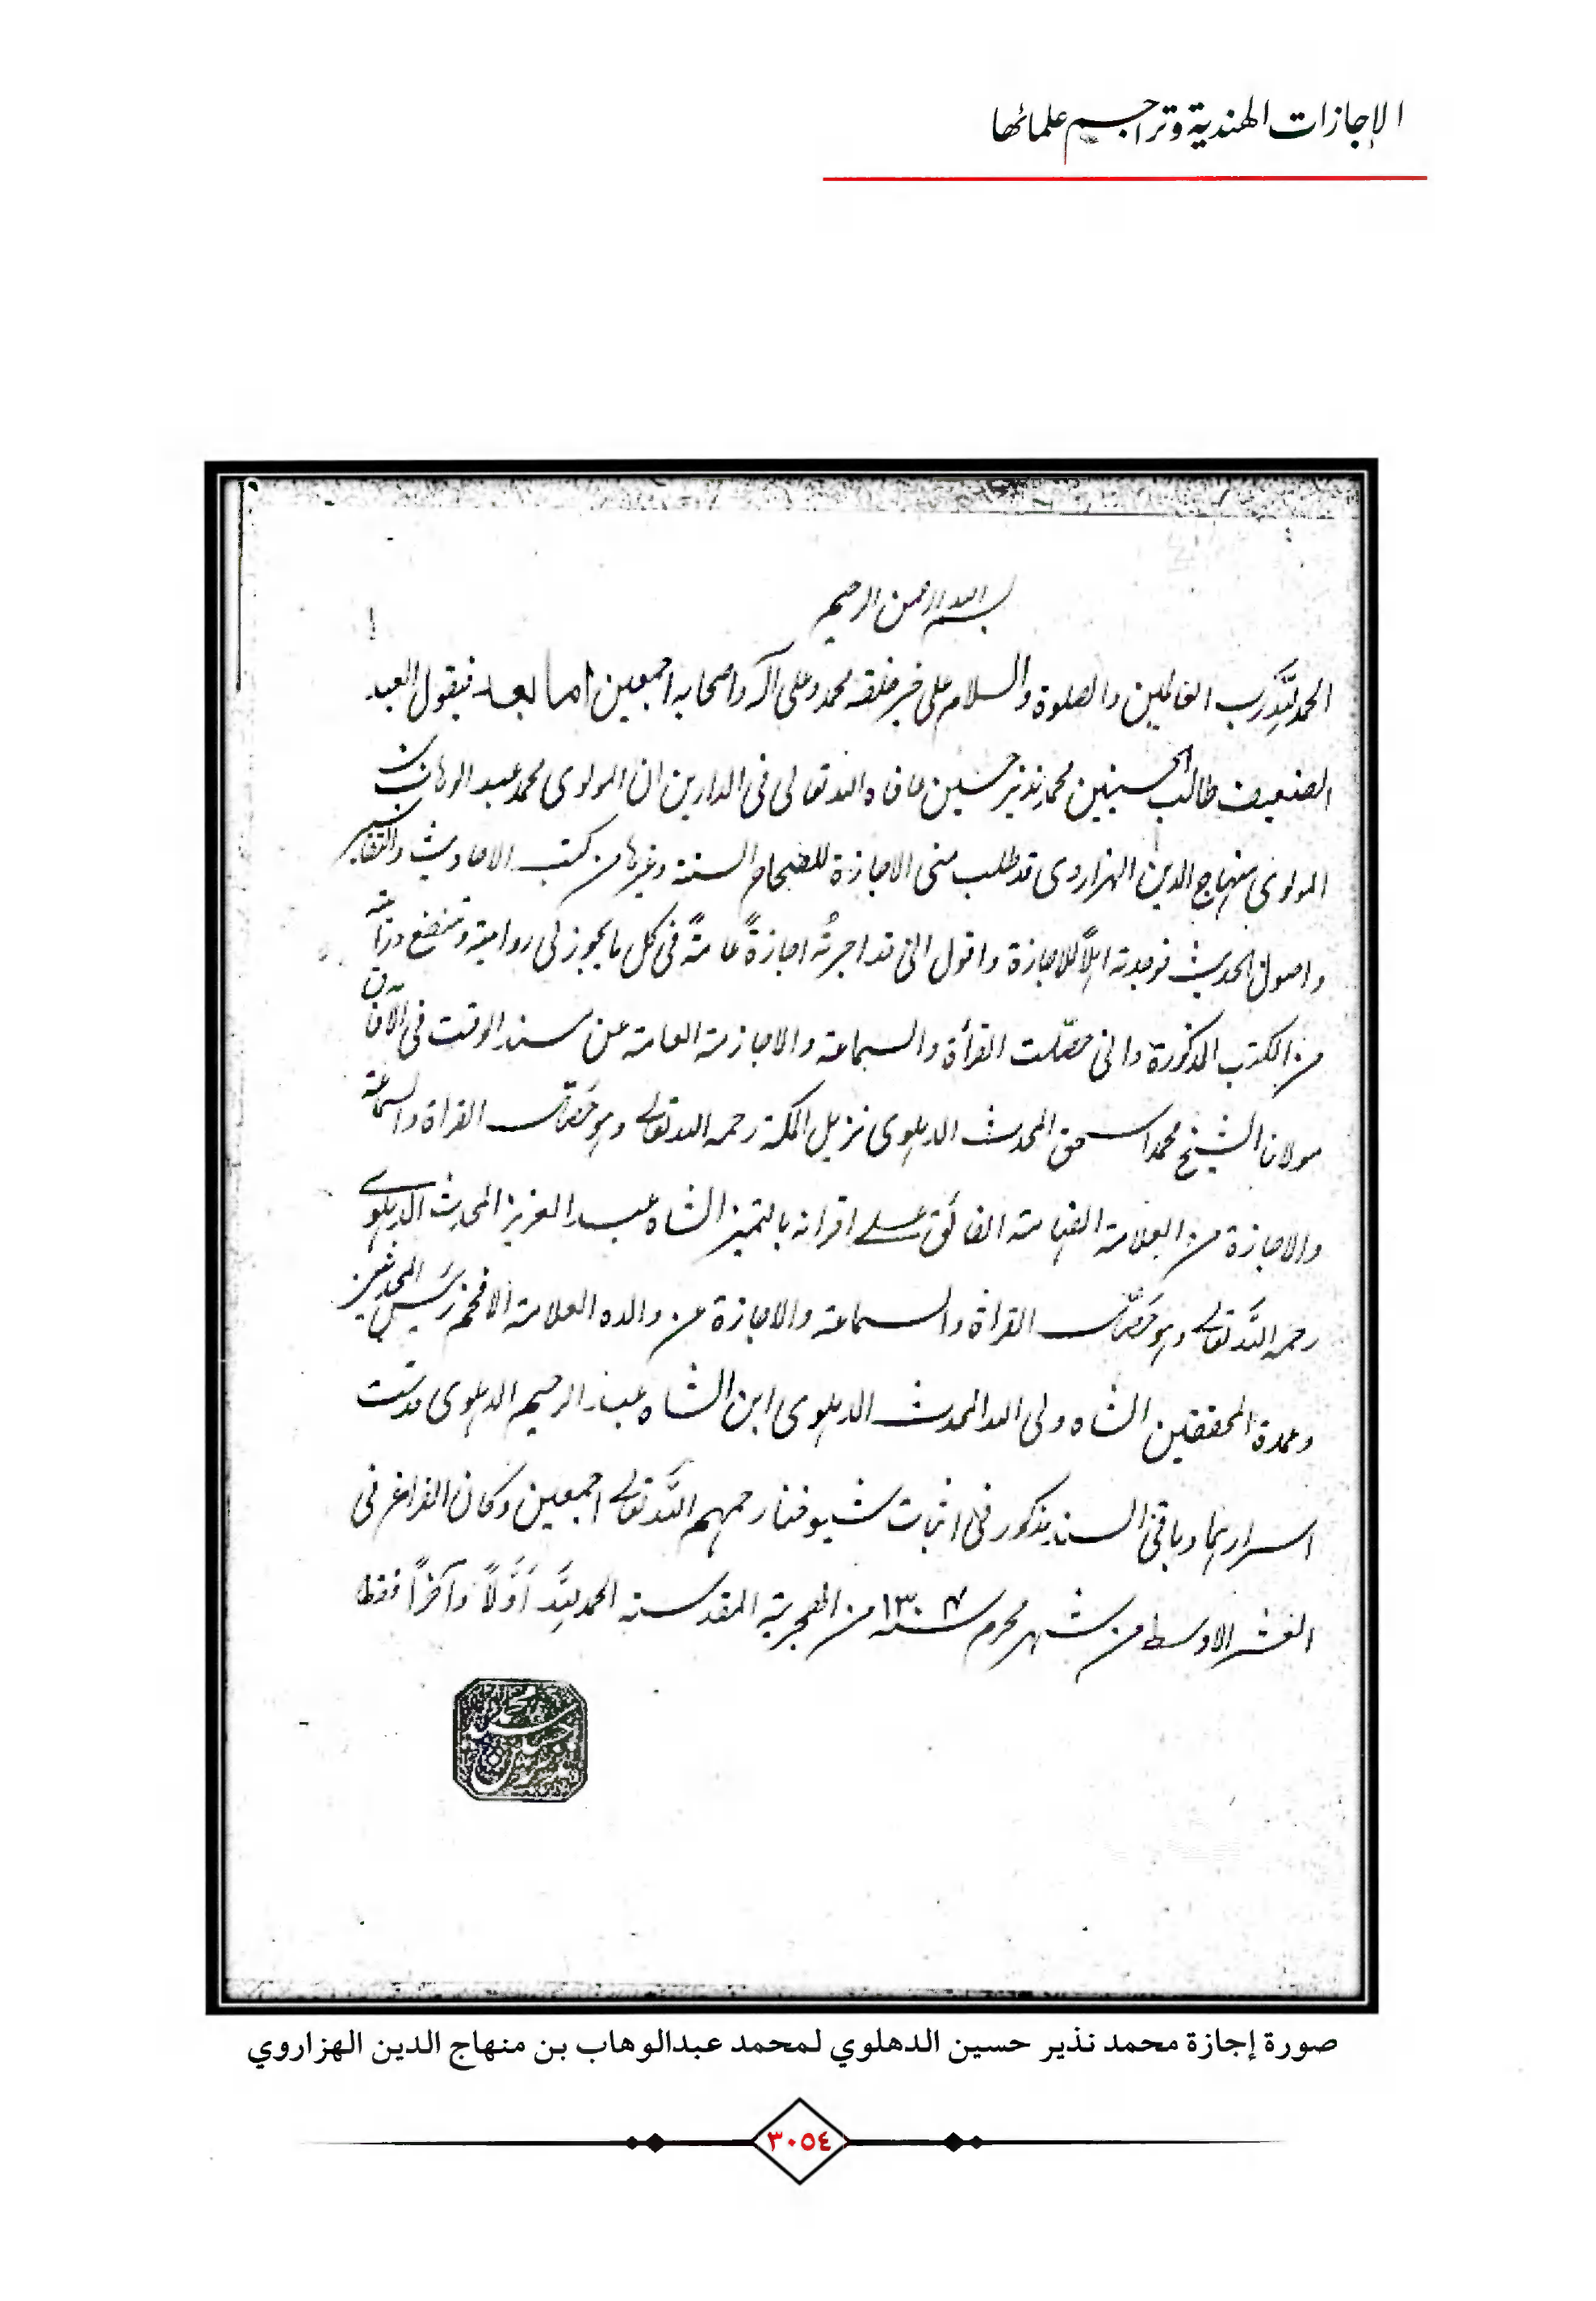 الإجازات الهندية وتراجم علمائها
بسم الله الرحمن الرحيم
الحمد لله رب العالمين والصلوة والسلام على خير خلقه محمد وعلى آله واصحابه اجمعين اما بعد فيقول العبد
الضعيف طالب الحسنيين محمد نذير حسين عافاه الله تعالى فى الدارين ان المولوى محمد عبد الوهاب بن
المولوى منهاج الدين الهزاروى قد طلب منى الاجازة للصحاح الستة وغيرها من كتب الاحاديث والتفاسير
واصول الحديث فوجدته اهلاً للاجازة واقول انى قد اجزتُه اجازةً عامةً فى كل ما يجوز لى روايته
من الكتب المذكورة وانى حصّلت القرأة والسماعة والاجازة العامة عن مسند الوقت فى الآفاق
مولانا الشيخ محمد اسحق المحدث الدهلوى نزيل المكة رحمه الله تعالى وهو حَصَّل القراة والسماعة
والاجازة من العلامة الفهامة الفائق على اقرانه بالتميز الشاه عبد العزيز المحدث الدهلوى
رحمه الله تعالى وهو حَصَّل القراة والسماعة والاجازة عن والده العلامة الافخم رَئيس المحدثين
وعمدة المحققين الشاه ولى الله المحدث الدهلوى ابن الشاه عبد الرحيم الدهلوى قدست
اسرارهما وباقى السند مذكور فى اثبات شيوخنا رحمهم الله تعالى اجمعين وكان الفراغ فى
العشر الاوسط من شهر محرم سنه ١٣٠٤ من الهجرية المقدسة الحمد لله اَوّلاً وآخراً فقط
صورة إجازة محمد نذير حسين الدهلوي لمحمد عبدالوهاب بن منهاج الدين الهزاروي
٣٠٥٤